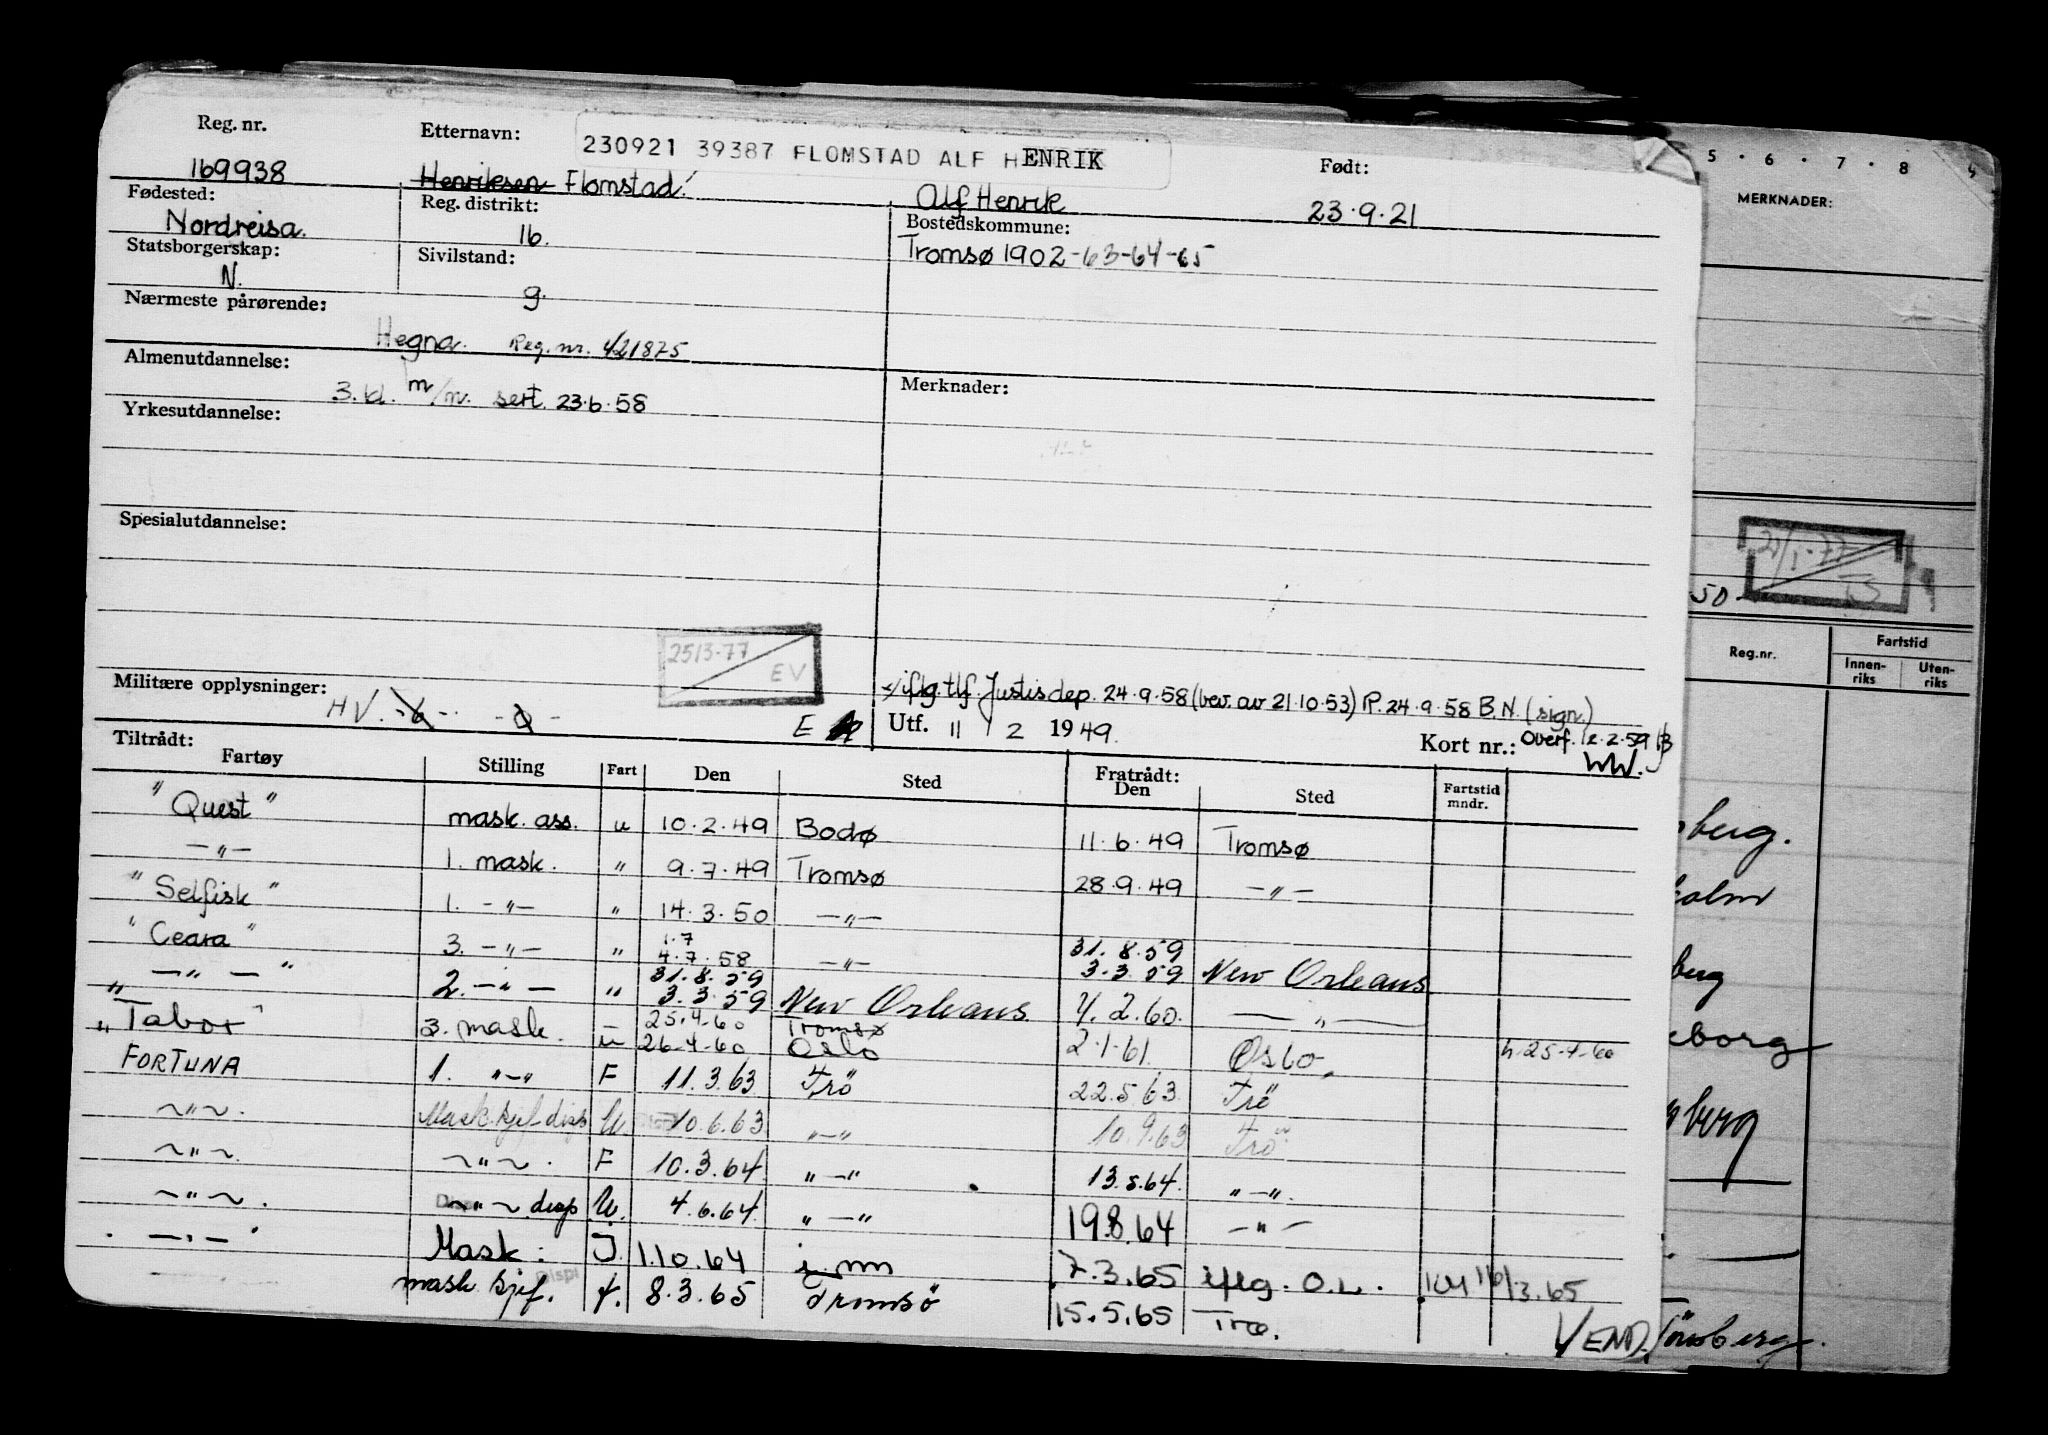 Reg. nr.
Etternavn:
230921 39387 FLOMSTAD ALF HENRIK
Født:
169938
Henriksen Flomstad
Alf Henrik
23.9.21
Fødested:
Reg. distrikt:
Bostedskommune:
Nordreisa.
16.
Tromsø 1902-63-64-65
Statsborgerskap:
Sivilstand:
N.
g.
Nærmeste pårørende:
Hegna. Reg. nr. 421875
Almenutdannelse:
Merknader:
3. kl. m/m. sert. 23.6.58
Yrkesutdannelse:
Spesialutdannelse:
25/3-77
EV
Militære opplysninger:
HV.
E
x/ iflg. tlf. Justisdep. 24.9.58 (bev. av 21.10.53) R. 24.9.58 B.N. (sign.)
Utf. 11 / 2 1949.
Kort nr.: Overf. 12.2.59
WW.
Tiltrådt:
Fratrådt:
Fartøy Stilling Fart Den Sted Den Sted Fartstid mndr.
"Quest" mask. ass. u 10.2.49 Bodø 11.6.49 Tromsø
—"— 1. mask. " 9.7.49 Tromsø 28.9.49 —"—
"Selfisk" 1. —"— " 14.3.50 —"—
"Ceara" 3. —"— " 1.7 4.7.58 —"— 31.8.59 3.3.59 New Orleans
"—"—" 2. —"— " 31.8.59 3.3.59 New Orleans 4.2.60. —"—
"Tabor" 3. mask. — 25.4.60 Tromsø
u 26.4.60 Oslo 2.1.61. Oslo. h. 25.7.60
FORTUNA 1. "—" F 11.3.63 Trö 22.5.63 Trö
~"~. Mask.kjef disp U. 10.6.63 "—" 10.9.63 Trö
~"~. ~"~. F 10.3.64 "—" 13.5.64. "—".
~"~. ~"~ disp U. 4.6.64. "—" 19.8.64 —"—
—"— Mask. J. 1.10.64 i. nn 7.3.65 iflg. O.L. 3.65
mask kjef. Disp f. 8.3.65 Tromsö 15.5.65 Trø.
VEND.
5 · 6 · 7 · 8
MERKNADER:
21/1-77
TS
50
Reg.nr.
Fartstid
Innenriks
Utenriks
berg.
holm
berg
eborg
berg
Tönsberg.